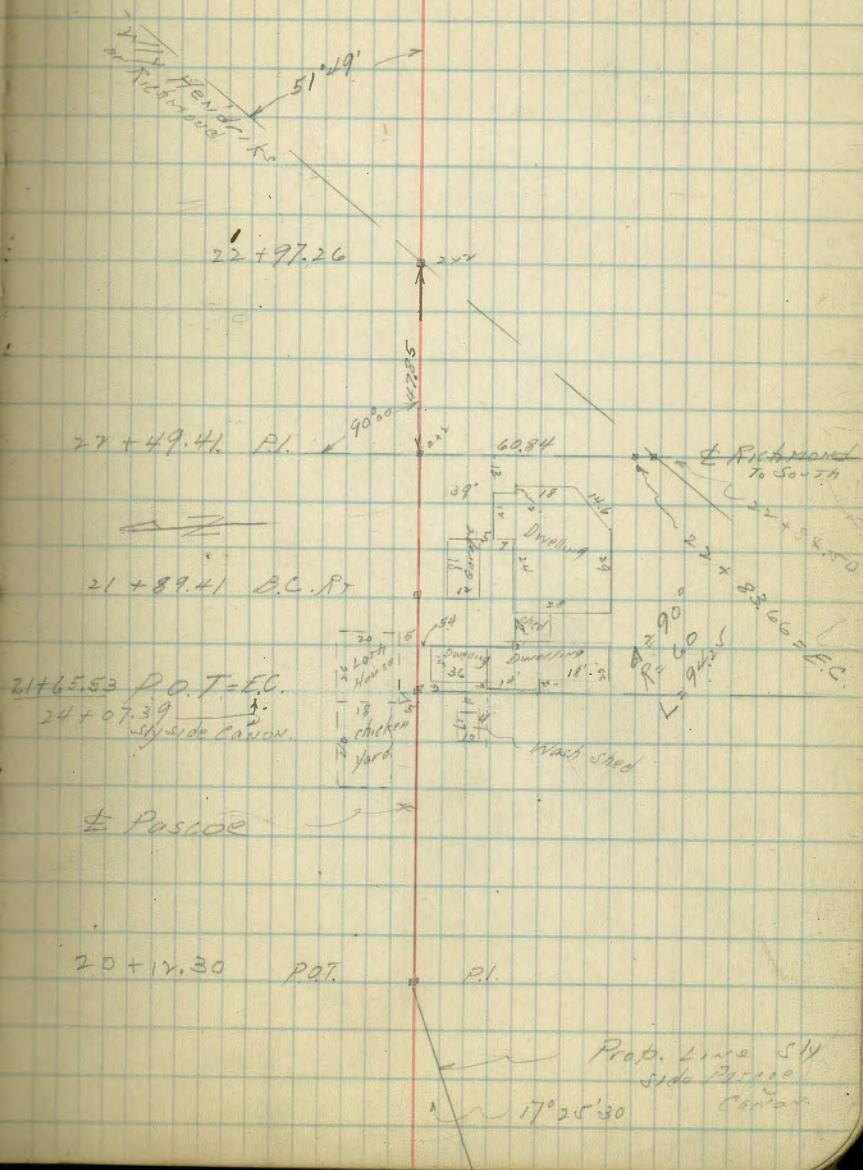 Hendriks
on Richmond
51°49'
22+97.26
2x2
47.85
90°00
22+49.41 P.I.
2x2
60.84
⅊ Richmond
To South
22+54.50
22+83.66=E.C.
13
39°
18
14.6
21
2
Dwelling
5
9
24
29
18
12
28
Shed
21+89.41 B.C. Rt
Δ=90°
R=60
L=94.25
54
20
6
Lath
House
Dwelling
36
Dwelling
14
18'
21+65.53 P.O.T=E.C.
24+07.39
Sly side Canon.
18
20
chicken
Yard
Wash shed
⅊ Pascoe
20+12.30 P.O.T. P.I.
Prop. Line Sly
Side Pascoe
Canon.
17°25'30